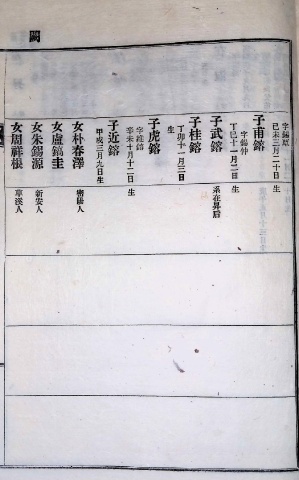 字錫原
己未三月二十日生
子甫鎔
字錫仲
丁巳十一月二日生
子武鎔
系在昇后
子桂鎔
丁卯十一月三日生
子虎鎔
字
辛未十月十二日生
子近鎔
甲戌三月九日生
女朴春澤
密陽人
女盧鎬圭
女朱錫源
新安人
女周祥根
草溪人